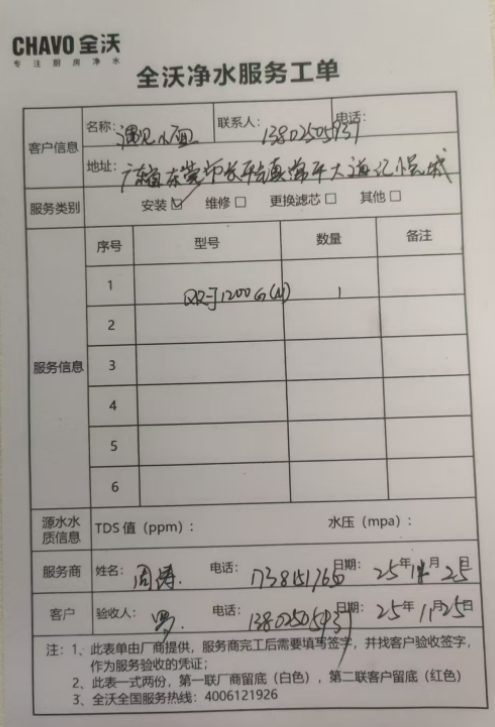 CHAVO 全沃
专注厨房净水
全沃净水服务工单
客户信息
名称：遇见小面 联系人： 电话：
13802505937
地址：广东省东莞市长平镇常平大道汇悦城
服务类别 安装☑ 维修□ 更换滤芯□ 其他□
服务信息
序号 型号 数量 备注
1 1200G(N) 1
2
3
4
5
6
源水水质信息 TDS 值（ppm）： 水压（mpa）：
服务商 姓名：周涛 电话： 日期：25年11月25
客户 验收人： 电话：13802505937 日期：25年11月25日
注：1、此表单由厂商提供，服务商完工后需要填写签字，并找客户验收签字，
作为服务验收的凭证；
2、此表一式两份，第一联厂商留底（白色），第二联客户留底（红色）
3、全沃全国服务热线：4006121926